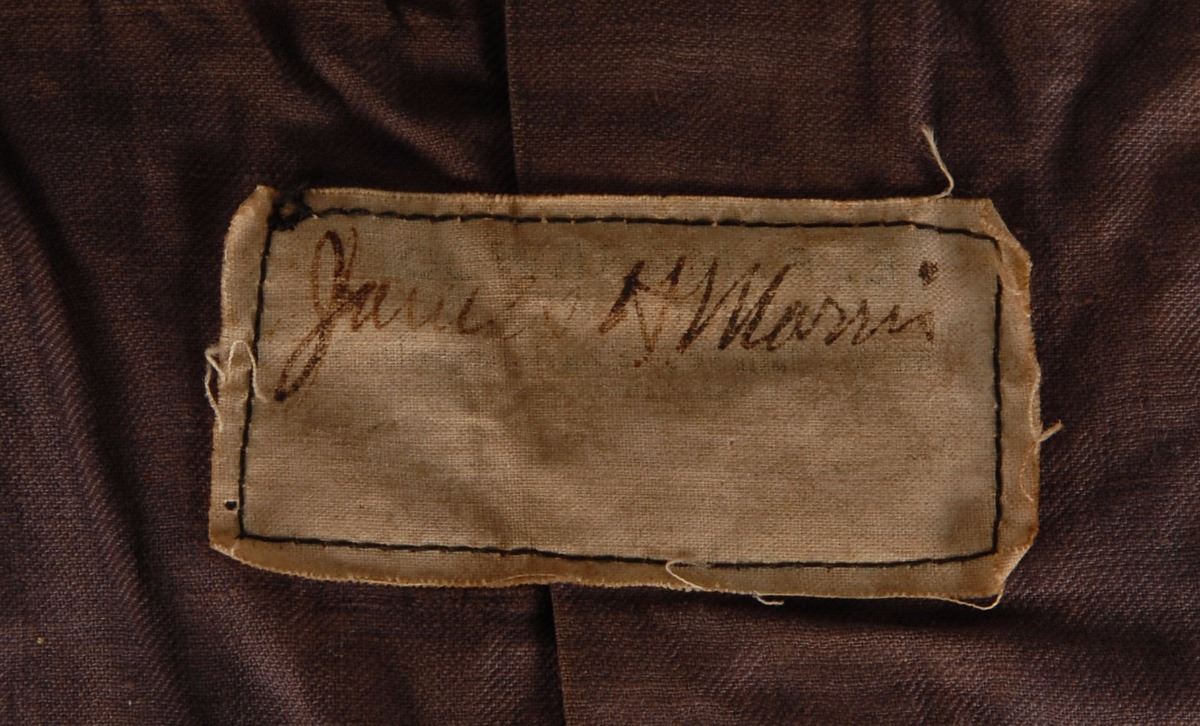 James H Marris